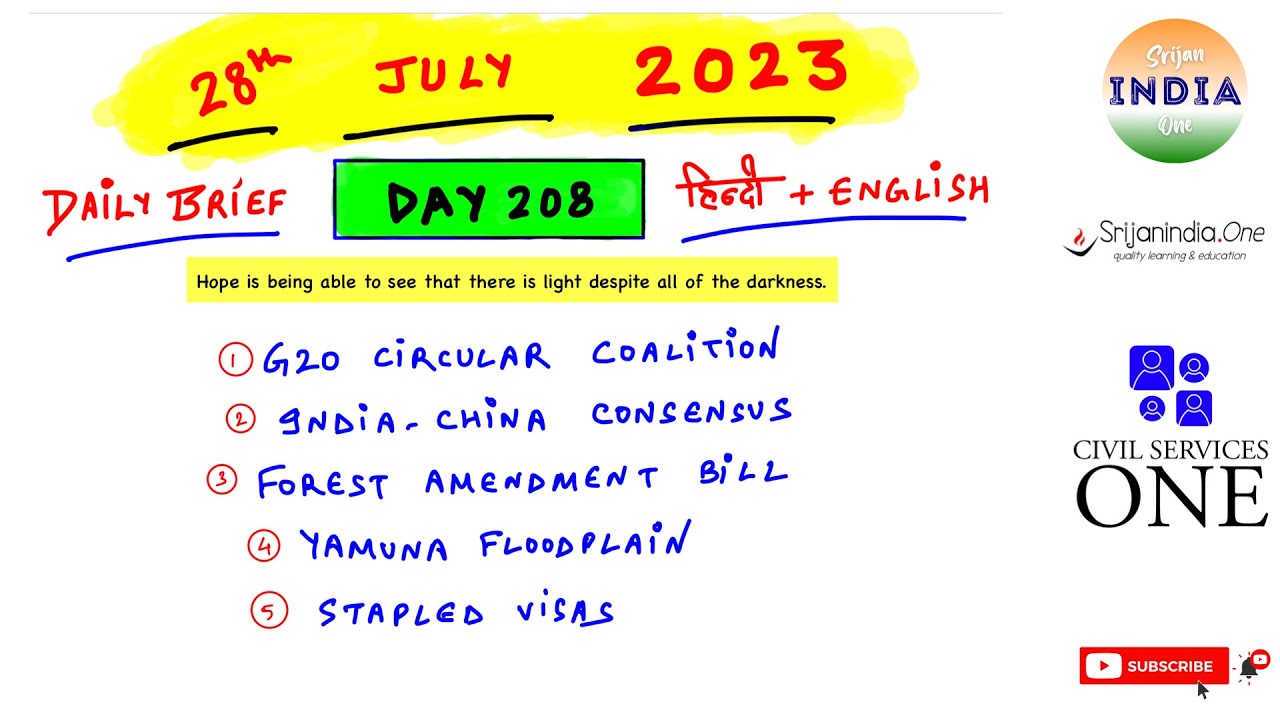 28th JULY 2023
DAILY BRIEF
DAY 208
हिन्दी + ENGLISH
Hope is being able to see that there is light despite all of the darkness.
1 G20 CIRCULAR COALITION
2 INDIA-CHINA CONSENSUS
3 FOREST AMENDMENT BILL
4 YAMUNA FLOODPLAIN
5 STAPLED VISAS
Srijan
INDIA
One
Srijanindia.One
quality learning & education
CIVIL SERVICES
ONE
SUBSCRIBE